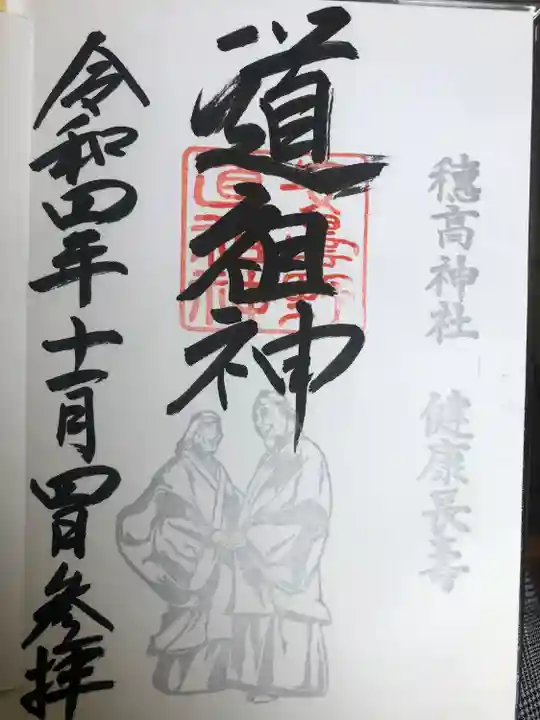 穂高神社 健康長寿
道祖神
令和四年十一月四日参拝